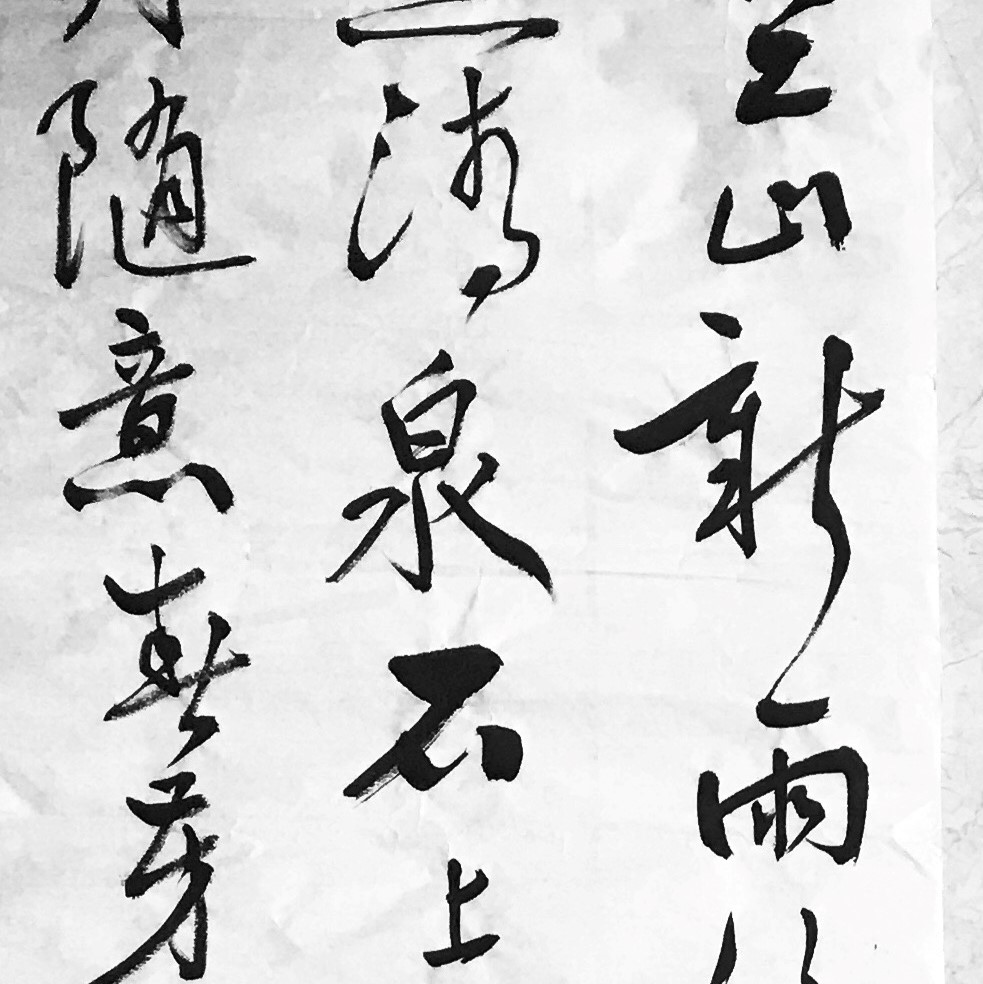 空山新雨
清泉石上
隨意春芳